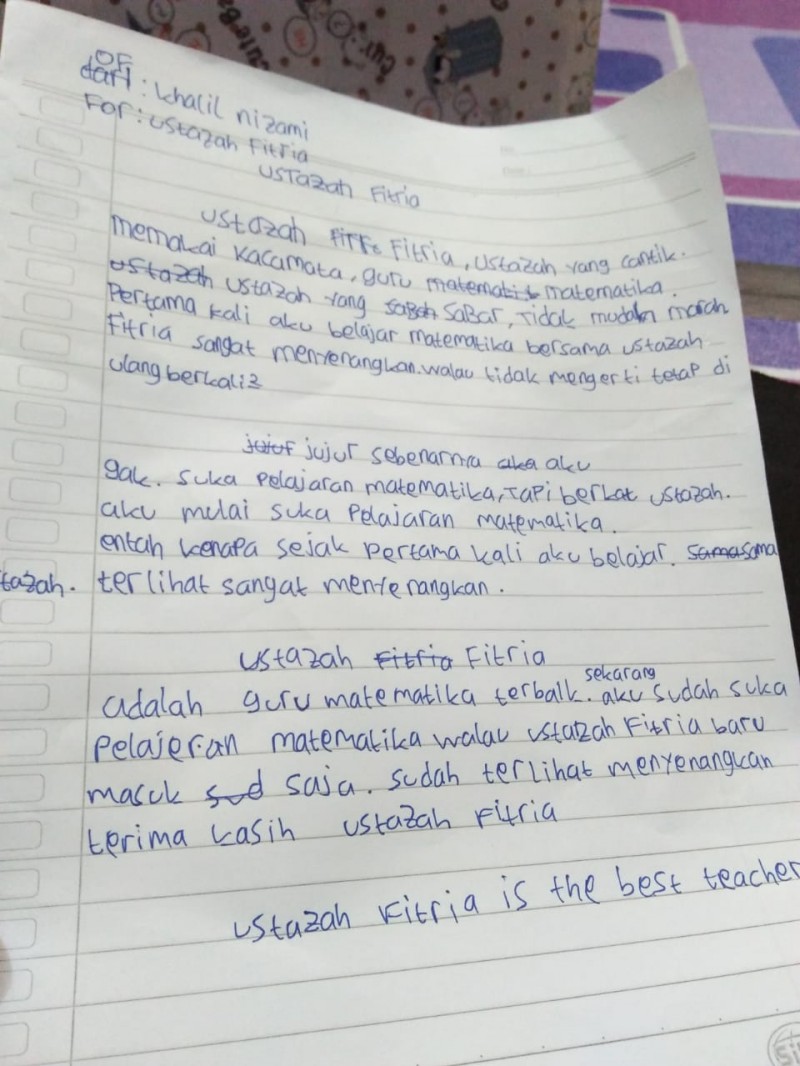 OF
dari : khalil nizami
For : ustazah Fitria
USTazah Fitria
ustazah Fitria, ustazah yang cantik.
memakai kacamata, guru matematika.
ustazah yang saBar, Tidak mudah marah
Pertama kali aku belajar matematika bersama ustazah
Fitria sangat menyenangkan. walau tidak mengerti tetap di
ulang berkali2
jujur sebenarnya aku
gak. suka Pelajaran matematika, TaPi berkat ustazah.
aku mulai suka Pelajaran matematika.
entah kenapa sejak pertama kali aku belajar. sama
tazah. terlihat sangat menyenangkan.
ustazah Fitria
adalah guru matematika terbaik. sekarang aku sudah suka
pelajeran matematika walau ustazah Fitria baru
masuk saja. sudah terlihat menyenangkan
terima kasih ustazah Fitria
ustazah Fitria is the best teacher